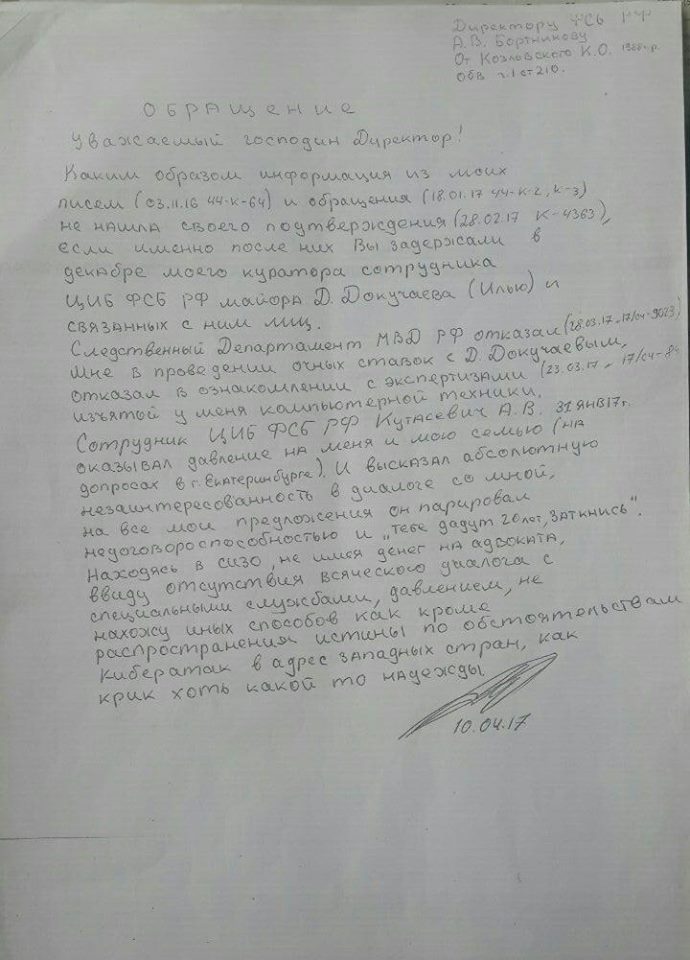 Директору ФСБ РФ
А.В. Бортникову
От Козловского К.О. 1988 г.р.
Обв ч.1 ст 210.
ОБРАЩЕНИЕ
Уважаемый господин Директор!
Каким образом информация из моих
писем (03.11.16 44-К-64) и обращения (18.01.17 44-К-2, К-3)
не нашла своего подтверждения (28.02.17 К-4363),
если именно после них Вы задержали в
декабре моего куратора сотрудника
ЦИБ ФСБ РФ майора Д. Докучаева (Илью) и
связанных с ним лиц.
Следственный Департамент МВД РФ отказал (28.03.17, 17/04-9023)
мне в проведении очных ставок с Д. Докучаевым,
отказал в ознакомлении с экспертизами (23.03.17, 17/04-84
изъятой у меня компьютерной техники.
Сотрудник ЦИБ ФСБ РФ Кутасевич А.В. 31 янв 17г.
оказывал давление на меня и мою семью (на
допросах в г. Екатеринбурге). И высказал абсолютную
незаинтересованность в диалоге со мной,
на все мои предложения он парировал
недоговороспособностью и „тебе дадут 20 лет, заткнись".
Находясь в сизо, не имея денег на адвоката,
ввиду отсутствия всяческого диалога с
специальными службами, давлением, не
нахожу иных способов как кроме
распространения истины по обстоятельствам
кибератак в адрес западных стран, как
крик хоть какой то надежды
10.04.17